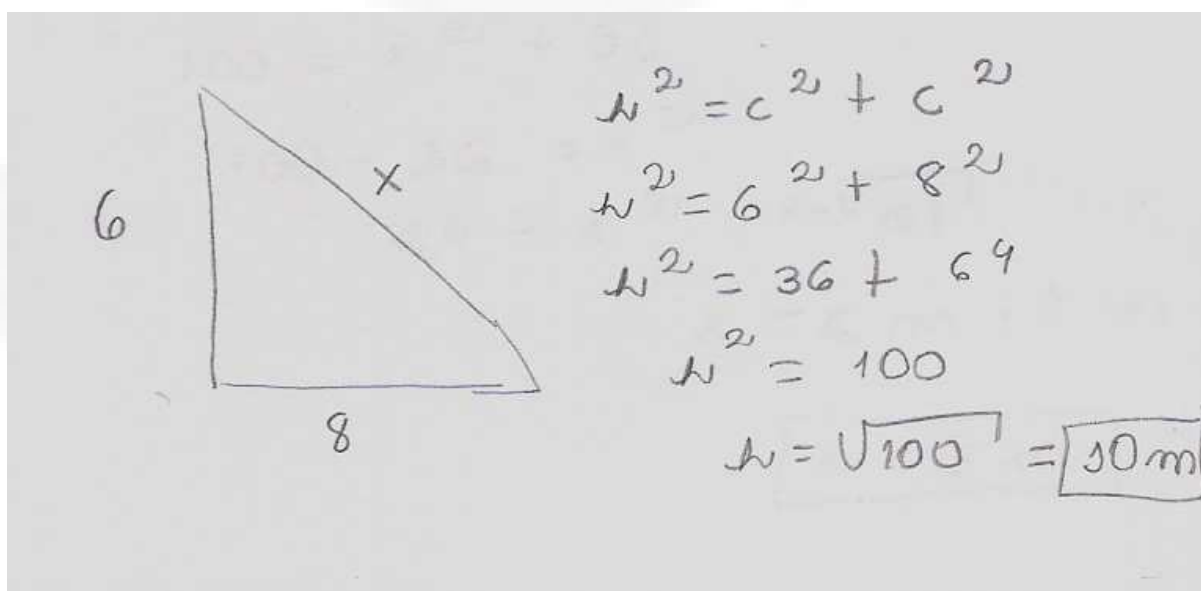 6
x
8
h² = c² + c²
h² = 6² + 8²
h² = 36 + 64
h² = 100
h = √100 = 10m